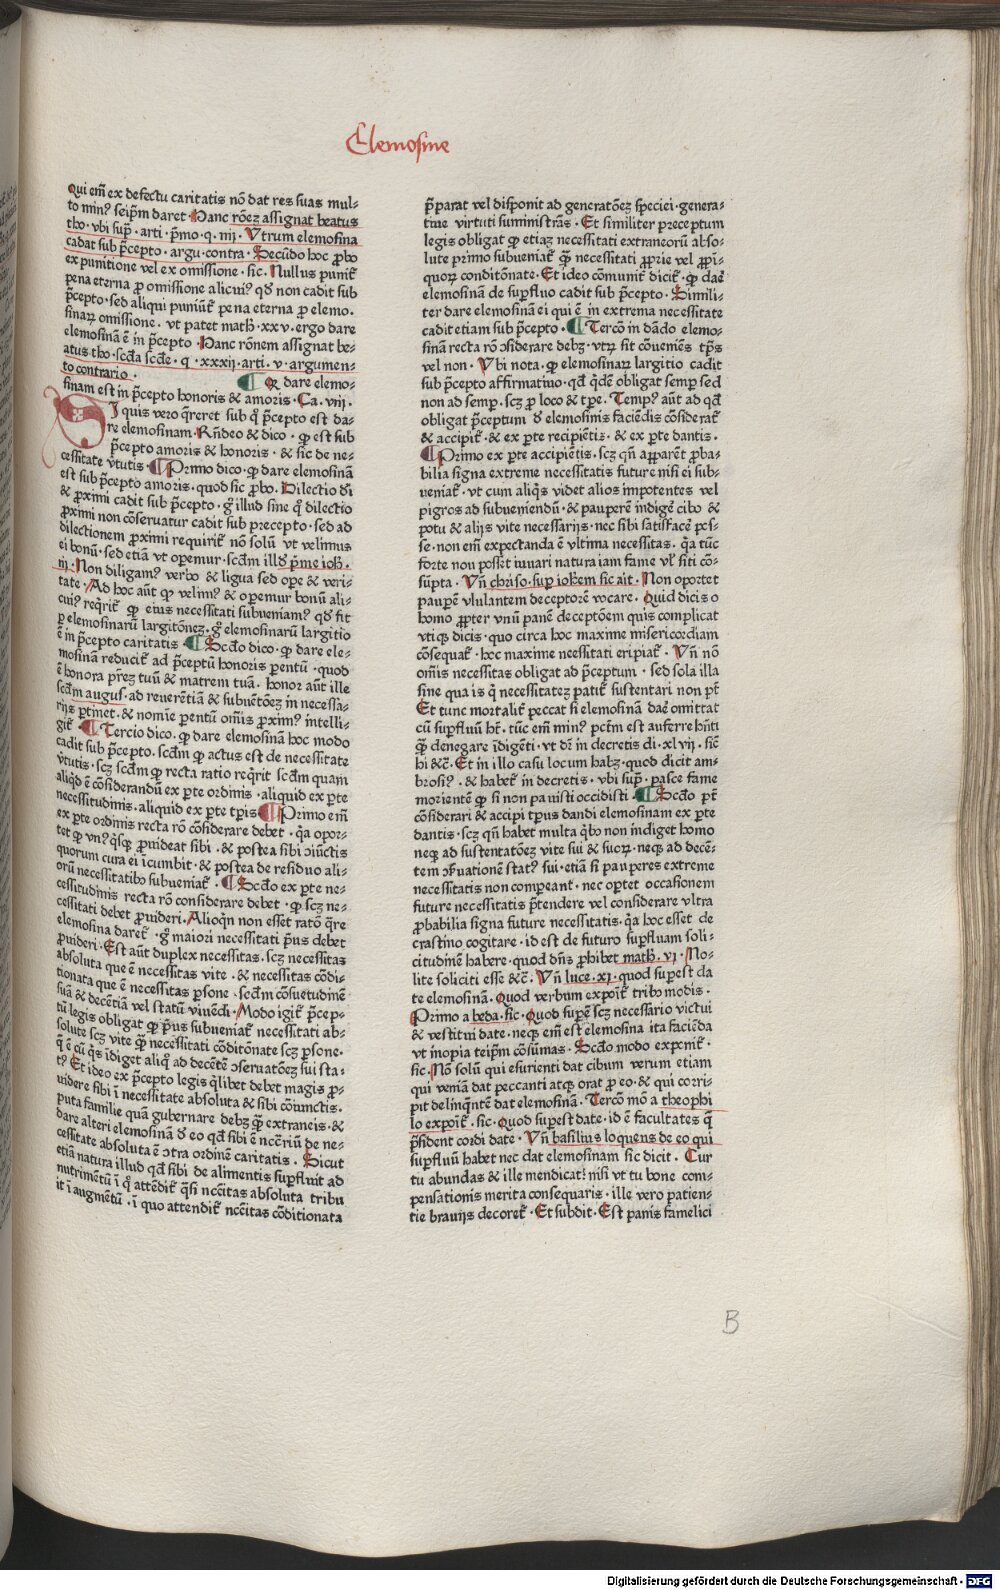 Elemosine
Qui em̄ ex defectu caritatis nō dat res suas mul-
to minꝰ seip̄m daret · Hanc rōez assignat beatus
tho · vbi sup̄ · arti · p̄mo · q · iiii · Vtrum elemosina
cadat sub p̄cepto · argu · contra · Secūdo hoc ꝓbo
ex punitione vel ex omissione · sic · Nullus punit᷒
pena eterna ꝓ omissione alicuiꝰ qd̄ non cadit sub
p̄cepto · sed aliqui puniūt᷒ pena eterna ꝓ elemo-
sinaꝝ omissione · vt patet math̄ · xxv · ergo dare
elemosinā ē in p̄cepto · Hanc rōnem assignat be-
atus tho · scd̄a scd̄e · q · xxxii · arti · v · argumen-
to contrario ·
¶ Qꝫ dare elemo-
sinam est in p̄cepto honoris & amoris · Ca · viii ·
Si quis vero q̄reret sub q̄ p̄cepto est da-
re elemosinam · Rn̄deo & dico · ꝙ est sub
p̄cepto amoris & honoris · & sic de ne-
cessitate v̄tutis ¶ Primo dico · ꝙ dare elemosinā
est sub p̄cepto amoris · quod sic ꝓbo · Dilectio dī
& ꝓximi cadit sub p̄cepto · gͦ illud sine q̄ dilectio
ꝓximi non cōseruatur cadit sub precepto · sed ad
dilectionem ꝓximi requirit᷒ nō solū vt velimus
ei bonū · sed etiā vt operemur · scd̄m illḋ p̄me ioħ ·
iii · Non diligamꝰ verbo & ligua sed oꝑe & veri-
tate · Ad hoc aūt ꝙ velimꝰ & operemur bonū ali-
cuiꝰ req̄rit᷒ ꝙ eius necessitati subueniamꝰ qd̄ fit
ꝑ elemosinarū largitōnez · gͦ elemosinarū largitio
ē in p̄cepto caritatis ¶ Scd̄o dico · ꝙ dare ele-
mosinā reducit᷒ ad p̄ceptū honoris ꝑentū · quod
ē honora p̄rez tuū & matrem tuā · honor aūt ille
scd̄m augus̄ · ad reuerētiā & subuētōez in necessā-
riis ꝑtinet · & nomīe ꝑentū om̄is ꝓximꝰ intelli-
git᷒ · ¶ Tercio dico · ꝙ dare elemosinā hoc modo
cadit sub p̄cepto · scd̄m ꝙ actus est de necessitate
v̄tutis · scꝫ scd̄m ꝙ recta ratio req̄rit scd̄m quam
aliqd̄ ē cōsiderandū ex ꝑte ordinis · aliquid ex ꝑte
necessitudinis · aliquid ex ꝑte tꝑis ¶ Primo em̄
ex ꝑte ordinis recta rō cōsiderare debet · q̄a opor-
tet ꝙ vnꝰq̄sqꝫ ꝓuideat sibi · & postea sibi ↄiūctis
quorum cura ei īcumbit · & postea de residuo ali-
orū necessitatibꝰ subueniat᷒ · ¶ Scd̄o ex ꝑte ne-
cessitudinis recta rō considerare debet · ꝙ scꝫ ne-
cessitati debet ꝓuideri · Alioqn̄ non esset ratō q̄re
elemosina daret᷒ · gͦ maiori necessitati p̄us debet
ꝓuideri · Est aūt duplex necessitas · scꝫ necessitas
absoluta que ē necessitas vite · & necessitas cōdi-
tionata que ē necessitas ꝑsone · scd̄m cōsuetudinē
suā & decētiā vel statū viuēdi · Modo igit᷒ p̄cep-
tū legis obligat ꝙ p̄us subueniat᷒ necessitati ab-
solute scꝫ vite q̄ꝫ necessitati cōditōnate scꝫ ꝑsone ·
q̄ ē cū q̄s īdiget aliq̄ ad decētē ↄseruatōez sui sta-
tꝰ · Et ideo ex p̄cepto legis q̄libet debet magis ꝓ-
uidere sibi ī necessitate absoluta & sibi cōiunctis ·
puta familie quā gubernare debꝫ q̄ꝫ extraneis · &
dare alteri elemosinā d̄ eo qd̄ sibi ē nc̄eriū de ne-
cessitate absoluta ē ↄtra ordinē caritatis · Sicut
etiā natura illud qd̄ sibi de alimentis suꝑfluit ad
nutrimētū ī q̄ attēdit᷒ q̄si nc̄citas absoluta tribu
it ī augmētū · ī quo attendit᷒ nc̄citas cōditionata
p̄parat vel disponit ad generatōez speciei · genera-
tiue virtuti sumministrās · Et similiter preceptum
legis obligat ꝙ etiaꝫ necessitati extraneorū abso-
lute primo subueniat᷒ q̄ꝫ necessitati ꝓprie vel ꝓpī-
quoꝝ conditōnate · Et ideo cōmunit᷒ dicit᷒ · ꝙ dar̄
elemosinā de suꝑfluo cadit sub p̄cepto · Simili-
ter dare elemosinā ei qui ē in extrema necessitate
cadit etiam sub p̄cepto · ¶ Tercō in dādo elemo-
sinā recta rō ↄsiderare debꝫ · vtꝝ sit cōueniēs tp̄s
vel non · Vbi nota · ꝙ elemosinaꝝ largitio cadit
sub p̄cepto affirmatiuo · qd̄ q̄dē obligat semꝑ sed
non ad semꝑ · scꝫ ꝓ loco & tp̄e · Tempꝰ aūt ad qd̄
obligat p̄ceptum d̄ elemosinis faciēdis cōsiderat᷒
& accipit᷒ · & ex ꝑte recipiētis · & ex ꝑte dantis ·
¶ Primo ex ꝑte accipiētis · scꝫ qn̄ apparēt ꝓba-
bilia signa extreme necessitatis future nisi ei sub-
ueniat᷒ · vt cum aliq̄s videt alios impotentes vel
pigros ad subueniendū · & pauꝑem indigē cibo &
potu & aliis vite necessariis · nec sibi satisfacē ꝑs-
se · non em̄ expectanda ē vltima necessitas · q̄a tūc
forte nou posset iuuari natura iam fame vel siti cō-
sūpta · Vn̄ chriso · sup ioħem sic ait · Non oportet
pauꝑē vlulantem deceptorē vocare · Quid dicis o
homo ꝓpter vnū panē deceptōem quis complicat
vtiqꝫ dicis · quo circa hoc maxime misericordiam
cōsequat᷒ · hoc maxime necessitati eripiat᷒ · Vn̄ nō
om̄is necessitas obligat ad p̄ceptum · sed sola illa
sine qua is q̄ necessitatez patit᷒ sustentari non pt̄
Et tunc mortalit᷒ peccat si elemosinā dar̄ omittat
cū suꝑfluū hꝫ · tūc em̄ minꝰ pctm̄ est auferre hn̄ti
q̄ꝫ denegare īdigēti · vt dr̄ in decretis di · xlvii · sic̄
hi &c̄ · Et in illo casu locum habꝫ · quod dicit am-
brosiꝰ · & habet᷒ in decretis · vbi sup̄ · pasce fame
morientē ꝙ si non pauisti occidisti · ¶ Scd̄o pt̄
cōsiderari & accipi tꝑus dandi elemosinam ex ꝑte
dantis · scꝫ qn̄ habet multa q̄bꝰ non indiget homo
neqꝫ ad sustentatōez vite sui & suoꝝ · neqꝫ ad decē-
tem ↄẜuationē statꝰ sui · etiā si pauꝑes extreme
necessitatis non compeant᷒ · nec oꝑtet occasionem
future necessitatis p̄tendere vel considerare vltra
ꝓbabilia signa future necessitatis · q̄a hoc esset de
crastino cogitare · id est de futuro suꝑfluam soli-
citudinē habere · quod dn̄s ꝓhibet math̄ · vi · No-
lite soliciti esse &c̄ · Vn̄ luce · xi · quod suꝑest da
te elemosinā · Quod verbum expōit᷒ tribꝰ modis ·
Primo a beda · sic · Quod suꝑē scꝫ necessario victui
& vestitui date · neqꝫ em̄ est elemosina ita faciēda
vt inopia teip̄m cōsūmas · Scd̄o modo exponit᷒ ·
sic · Nō solū qui esurienti dat cibum verum etiam
qui veniā dat peccanti atqꝫ orat ꝓ eo · & qui corri-
pit delinquētē dat elemosinā · Tercō mō a theophi
lo expōit᷒ · sic · Quod suꝑest date · id ē facultates q̄
p̄sident cordi date · Vn̄ basilius loquens de eo qui
suꝑfluū habet nec dat elemosinam sic dicit · Cur
tu abundas & ille mendicat: nisi vt tu bone com-
pensationis merita consequaris · ille vero patien-
tie brauiis decoret᷒ · Et subdit · Est panis famelici
B
Digitalisierung gefördert durch die Deutsche Forschungsgemeinschaft - DFG